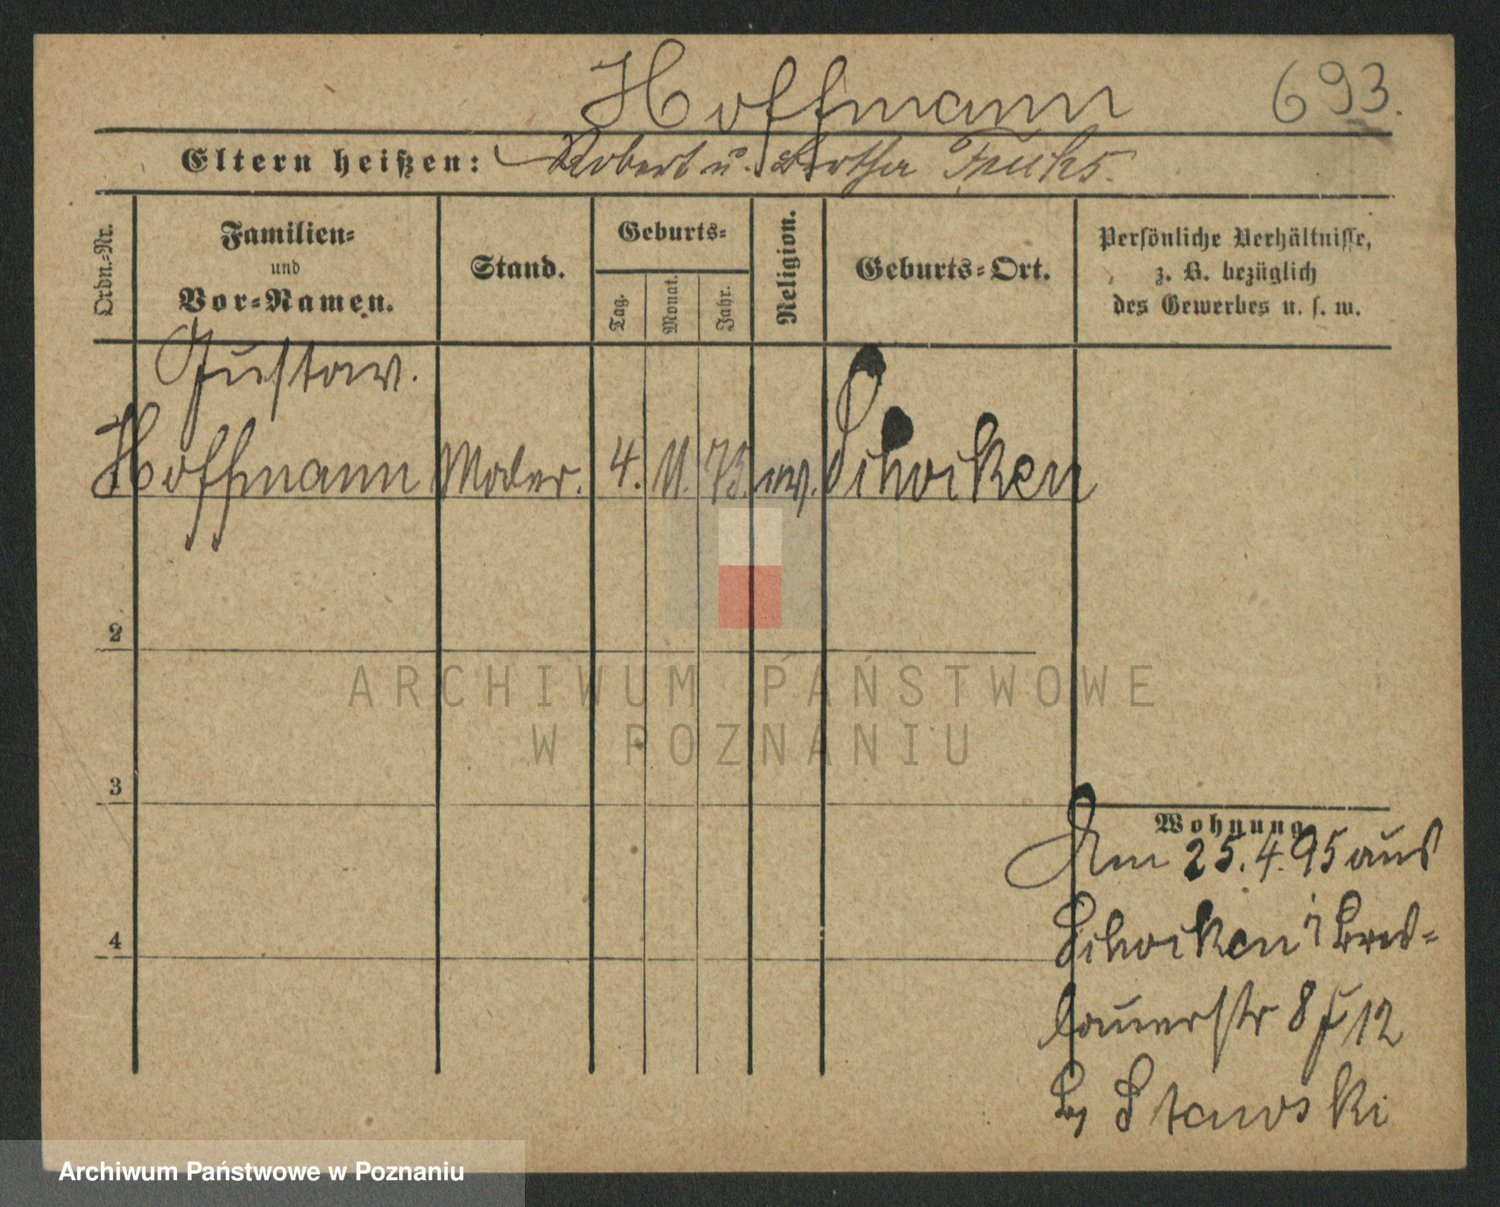 Hoffmann 693.
Eltern heißen: Robert u. Bertha Fuchs.
Ordn.-Nr.
Familien-
und
Vor-Namen.
Stand.
Geburts-
Tag.
Monat.
Jahr.
Religion.
Geburts-Ort.
Persönliche Verhältnisse,
z. B. bezüglich
des Gewerbes u. s. w.
Gustav.
Hoffmann Maler. 4. 11. 73. ev. Schocken
2
3
4
Wohnung
Am 25.4.95 aus
Schocken Bres-
lauerstr 8 12
By Stawski
ARCHIWUM PAŃSTWOWE
W POZNANIU
Archiwum Państwowe w Poznaniu